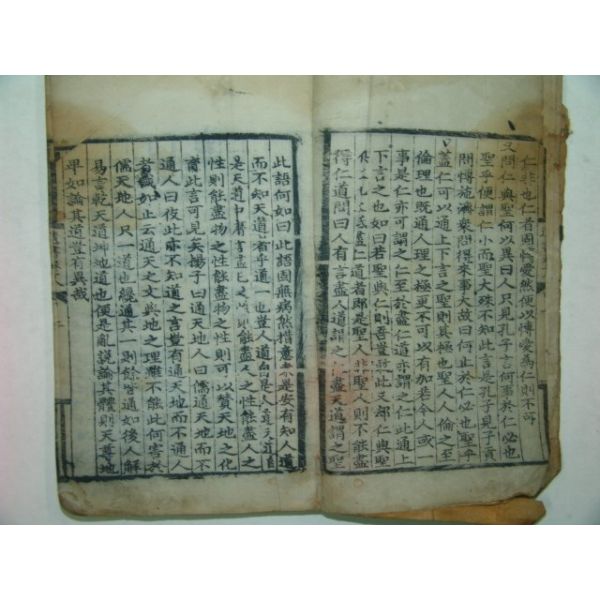 仁非也仁者固博愛然便以博愛為仁則不可
又問仁與聖何以異曰人只見孔子言何事於仁必也
聖乎便謂仁小而聖大殊不知此言是孔子見子貢
問博施濟衆問得來事大故曰何止於仁必也聖乎
蓋仁可以通上下言之聖則其極也聖人人倫之至
倫理也既通人理之極更不可以有加若今人或一
事是仁亦可謂之仁至於盡仁道亦謂之仁此通上
下言之也如曰若聖與仁則吾豈敢此又却仁與聖
仁道者即是聖人非聖人則不能盡
得仁道問曰人有言盡人道謂之仁盡天道謂之聖
此語何如曰此語固無病然措意未是安有知人道
而不知天道者乎道一也豈人道自是人道天道自
是天道中庸言盡己之性則能盡人之性能盡人之
性則能盡物之性能盡物之性則可以贊天地之化
育此言可見矣揚子曰通天地人曰儒通天地而不
通人曰伎此亦不知道之言豈有通天地而不通人
者哉如止云通天之文與地之理雖不能此何害於
儒天地人只一道也纔通其一則餘皆通如後人解
易言乾天道坤地道也便是亂說論其體則天尊地
卑如論其道豈有異哉